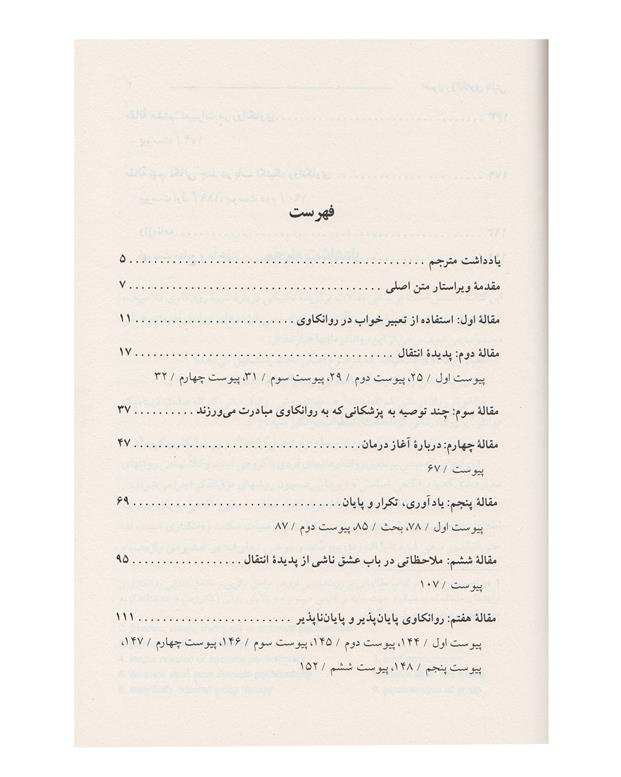 فهرست
یادداشت مترجم ........................................ ۵
مقدمهٔ ویراستار متن اصلی ................................ ۷
مقالهٔ اول: استفاده از تعبیر خواب در روانکاوی ........................ ۱۱
مقالهٔ دوم: پدیدهٔ انتقال .................................... ۱۷
پیوست اول / ۲۵، پیوست دوم / ۲۹، پیوست سوم / ۳۱، پیوست چهارم / ۳۲
مقالهٔ سوم: چند توصیه به پزشکانی که به روانکاوی مبادرت می‌ورزند .......... ۳۷
مقالهٔ چهارم: دربارهٔ آغاز درمان ................................ ۴۷
پیوست / ۶۷
مقالهٔ پنجم: یادآوری، تکرار و پایان ................................ ۶۹
پیوست اول / ۷۸، بحث / ۸۵، پیوست دوم / ۸۷
مقالهٔ ششم: ملاحظاتی در باب عشق ناشی از پدیدهٔ انتقال ................ ۹۵
پیوست / ۱۰۷
مقالهٔ هفتم: روانکاوی پایان‌پذیر و پایان‌ناپذیر ........................ ۱۱۱
پیوست اول / ۱۴۴، پیوست دوم / ۱۴۵، پیوست سوم / ۱۴۶، پیوست چهارم / ۱۴۷،
پیوست پنجم / ۱۴۸، پیوست ششم / ۱۵۲